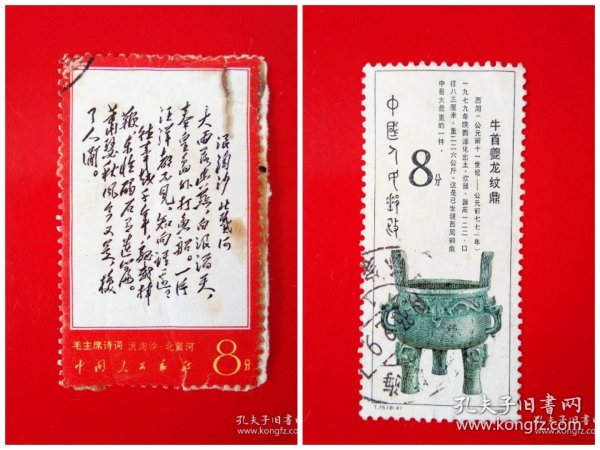 浪淘沙 北戴河
大雨落幽燕，白浪滔天，
秦皇岛外打鱼船。一片
汪洋都不见，知向谁边？
往事越千年，魏武挥
鞭，东临碣石有遗篇。
萧瑟秋风今又是，换
了人间。
毛主席诗词 浪淘沙·北戴河
中国人民邮政
8分
孔夫子旧書网
kongfz.com
牛首夔龙纹鼎
西周（公元前十一世纪——公元前七七一年）
一九七九年陕西淳化出土。波器，器高一二二、口
径八三厘米，重二二六公斤，这是已发掘西周铜鼎
中最大最重的一件。
8分
中國人民郵政
T.75(8-4)
孔夫子旧書网
kongfz.com